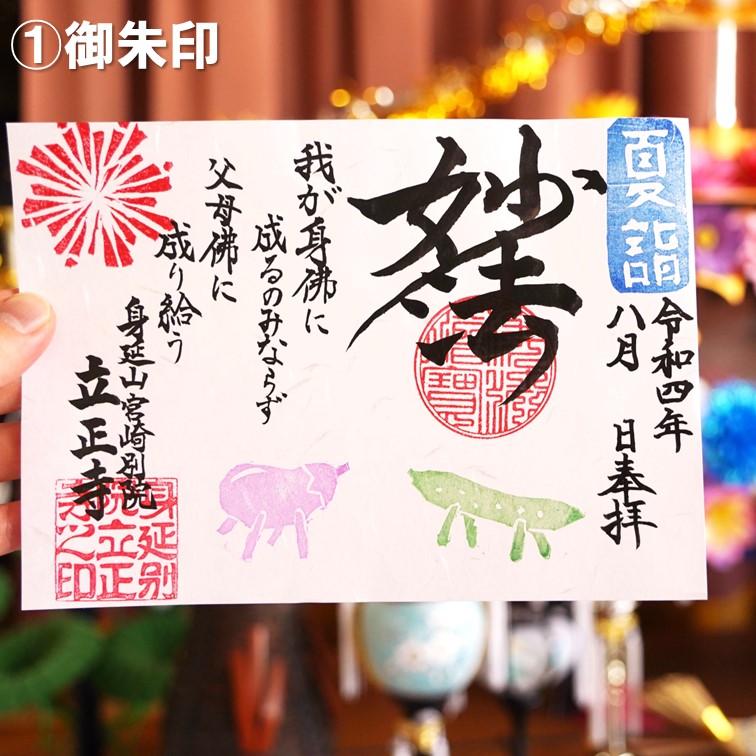 ①御朱印
夏詣
令和四年
八月 日奉拝
妙法
我が身佛に
成るのみならず
父母佛に
成り給う
身延山宮崎別院
立正寺
身延別
院立正
寺之印